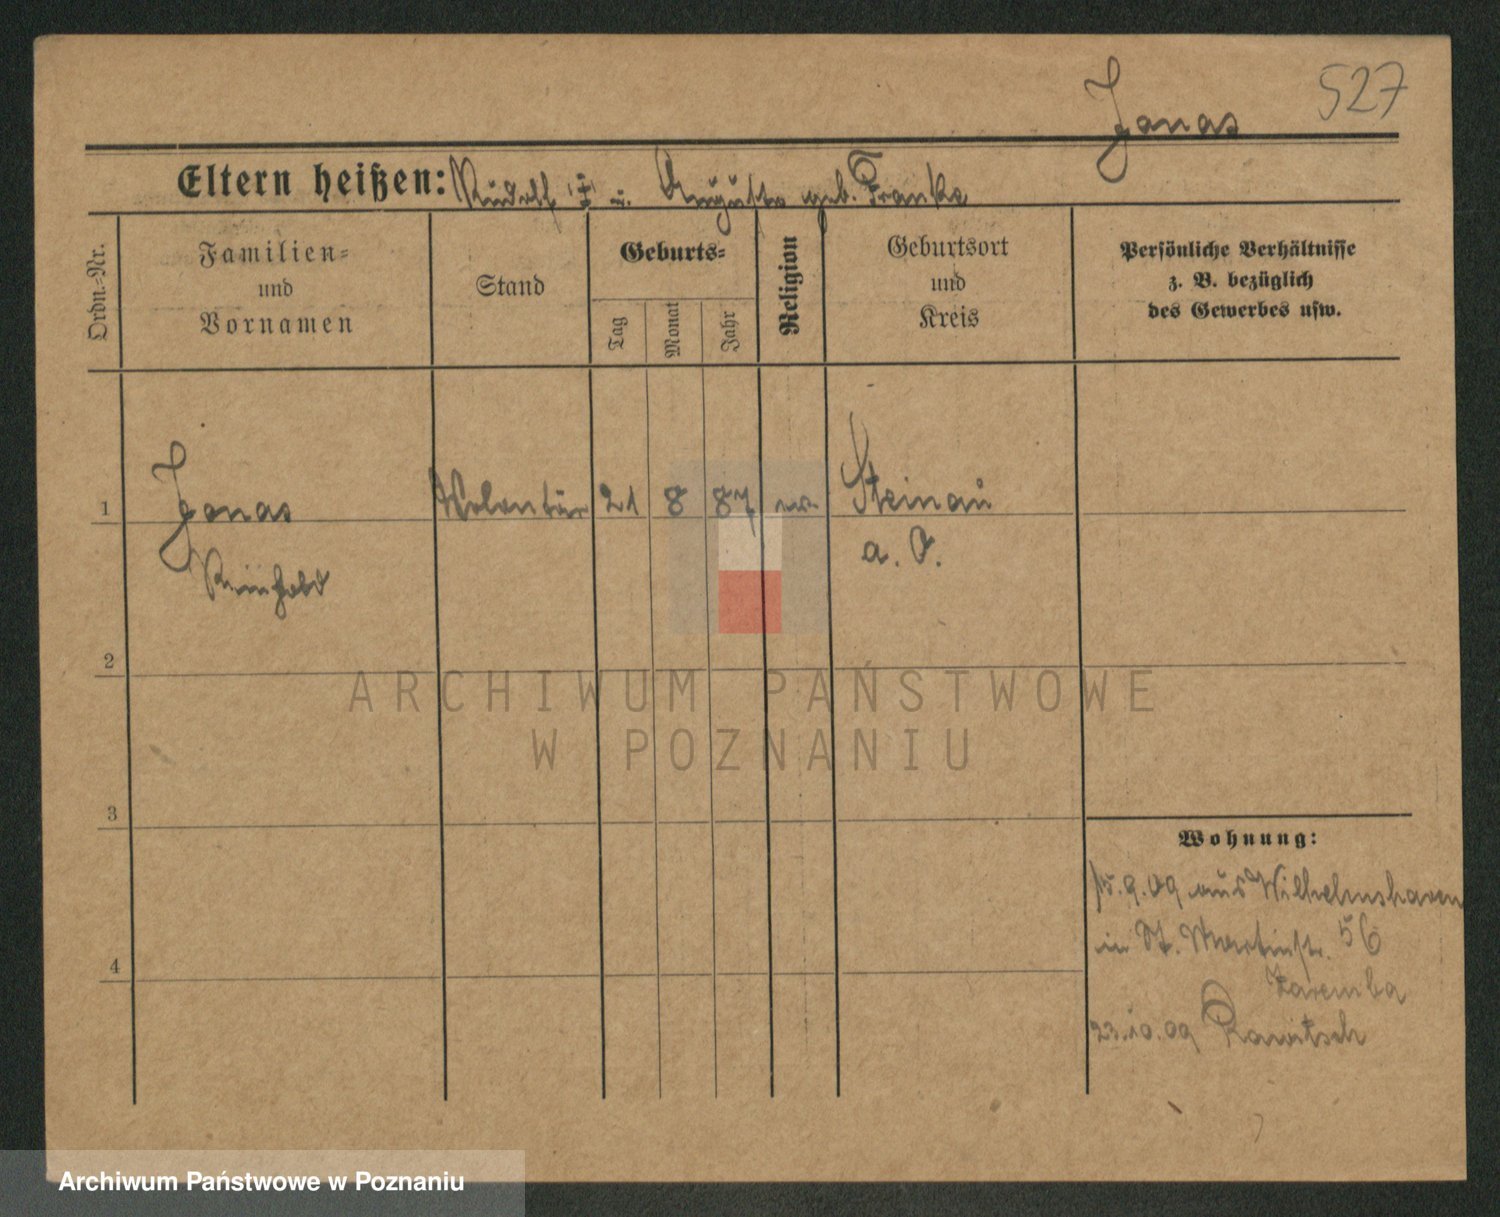 527
Jonas
Eltern heißen: Rudolf u. Auguste geb. Franke
Ordn.-Nr.
Familien-
und
Vornamen
Stand
Geburts-
Tag
Monat
Jahr
Religion
Geburtsort
und
Kreis
Persönliche Verhältnisse
z. B. bezüglich
des Gewerbes usw.
1 Jonas Volontär 21 8 87 ev. Steinau
Reinhold a. O.
2
3
4
Wohnung:
15.9.09 aus Wilhelmshaven
in St. Martinstr. 56
Zaremba
23.10.09 Rawitsch
ARCHIWUM PAŃSTWOWE
W POZNANIU
Archiwum Państwowe w Poznaniu